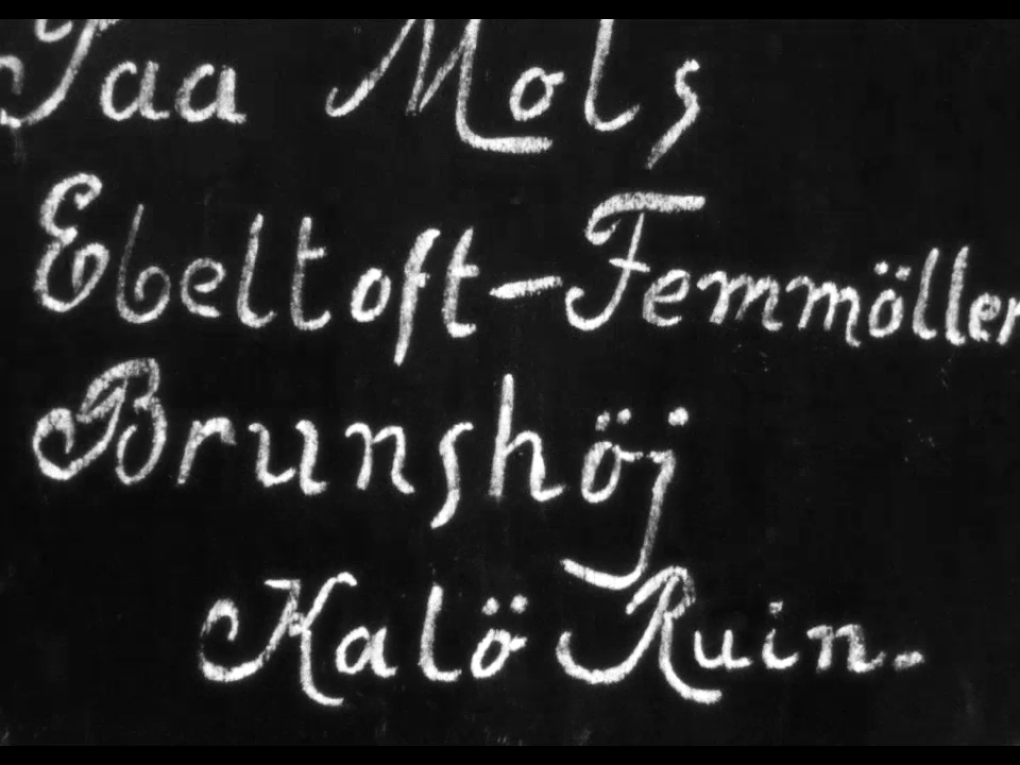 Paa Mols
Ebeltoft-Femmöller
Brunshöj
Kalö Ruin.